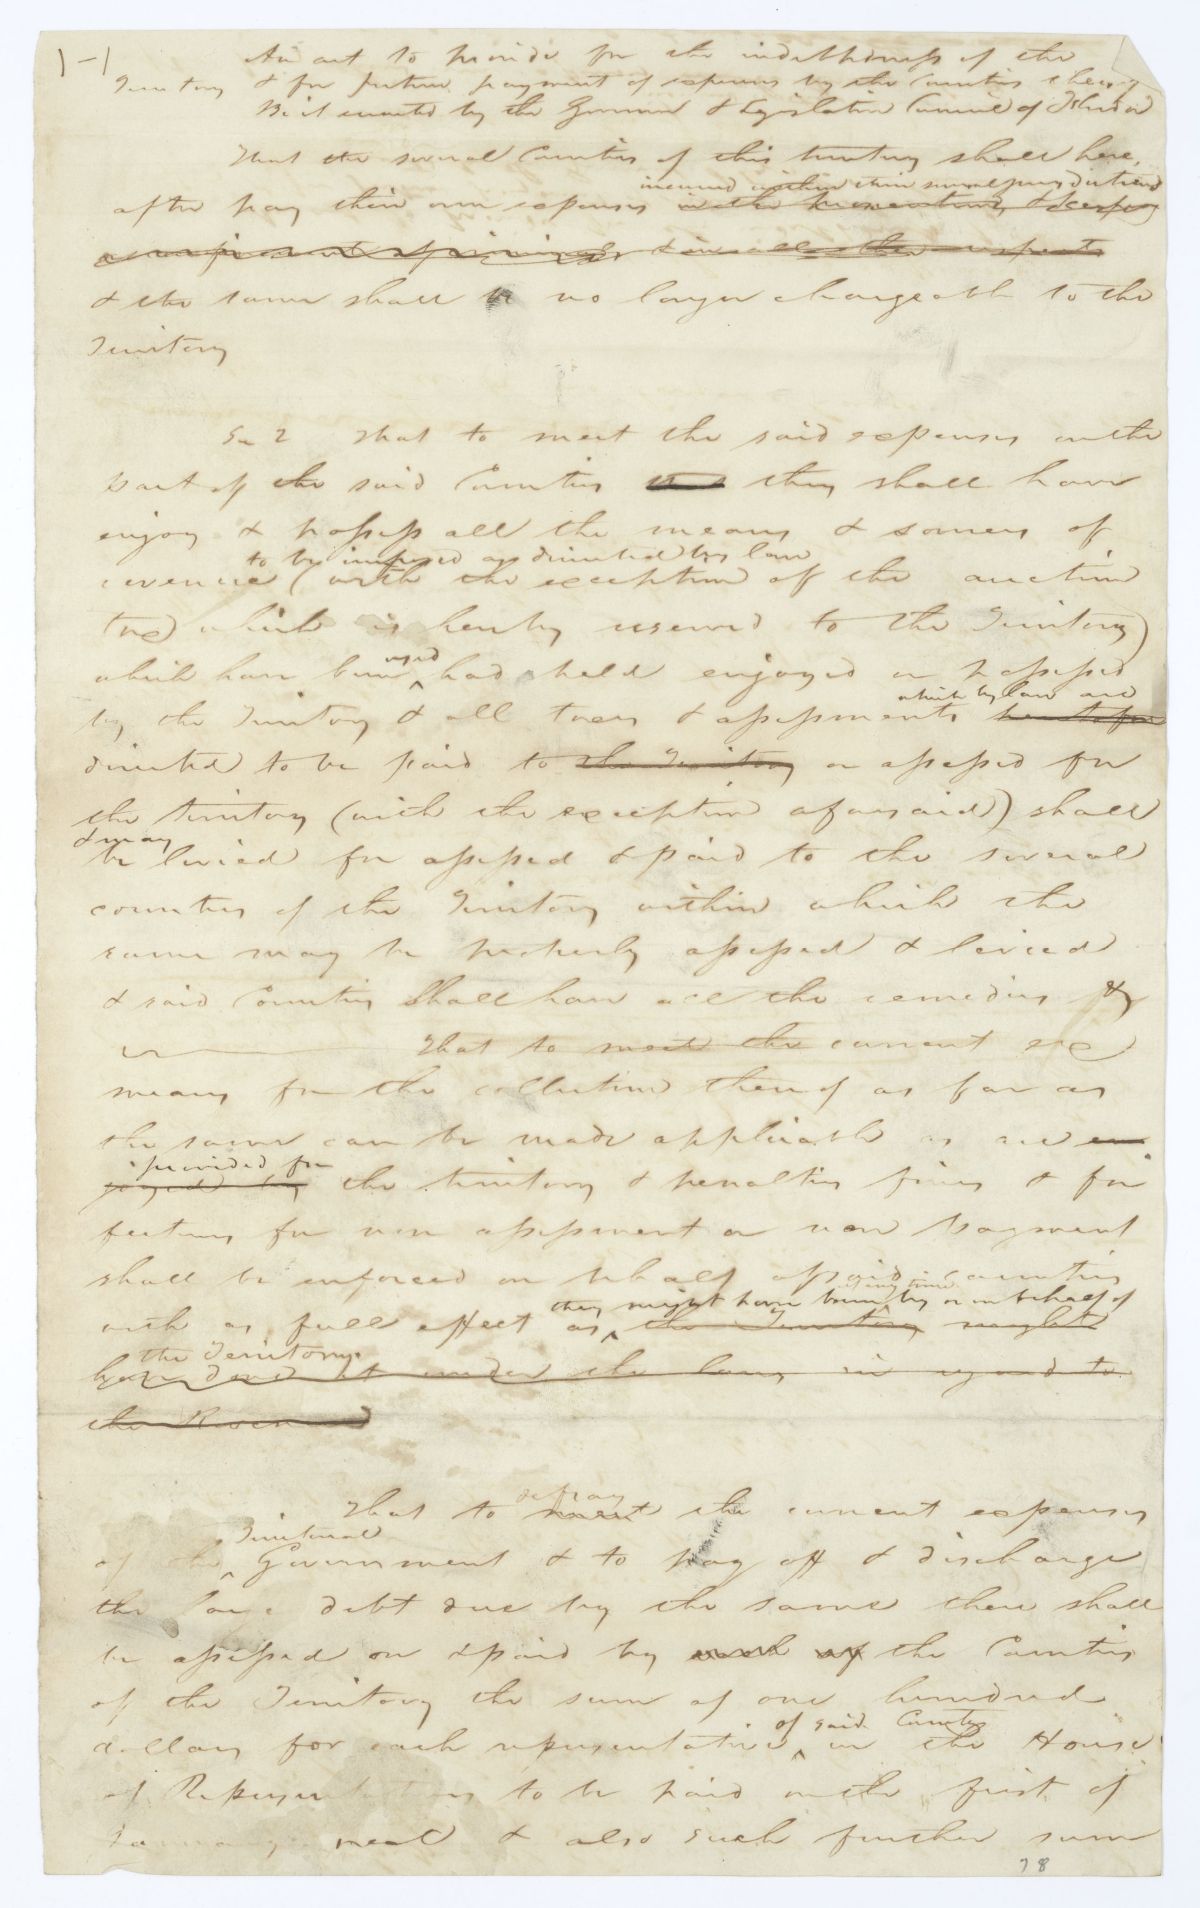 1-1
An act to provide for the indebtedness of the
Territory & for future payment of expenses by the Counties thereof
Be it enacted by the Governor & Legislative Council of Florida
That the several Counties of this territory shall here,
incurred within their several jurisdictions
after pay their own expenses in the prosecutions &
& in all other respects
& the same shall be no longer chargeable to the
Territory
Sec 2 That to meet the said expenses on the
part of the said Counties they shall have
enjoy & possess all the means & sources of
to be imposed as directed by law
revenue (with the exception of the auction
tax) which is hereby reserved to the Territory)
used
which have been had & held enjoyed or possessed
which by law are
by the Territory & all taxes & assessments heretofore
directed to be paid to the Territory or assessed for
the territory (with the exception aforesaid) shall
& may
be levied for assessed & paid to the several
counties of the Territory within which the
same may be properly assessed & levied
& said Counties shall have all the remedies &
That to meet the current exp
means for the collection thereof as far as
the same can be made applicable as are en
provided for
joyed by the territory & penalties fines & for
feitures for non assessment or non payment
shall be enforced on behalf of said counties
at any time
they might have been by or on behalf of
with as full effect as the Territory might
the Territory.
have done it under the laws in regard to
the Revenue
defray
That to meet the current expenses
Territorial
of the Government & to pay off & discharge
the large debt due by the same there shall
be assessed on & paid by each of the Counties
of the Territory the sum of one hundred
of said County
dollars for each representative in the House
of Representatives to be paid on the first of
January next & also such further sum
78